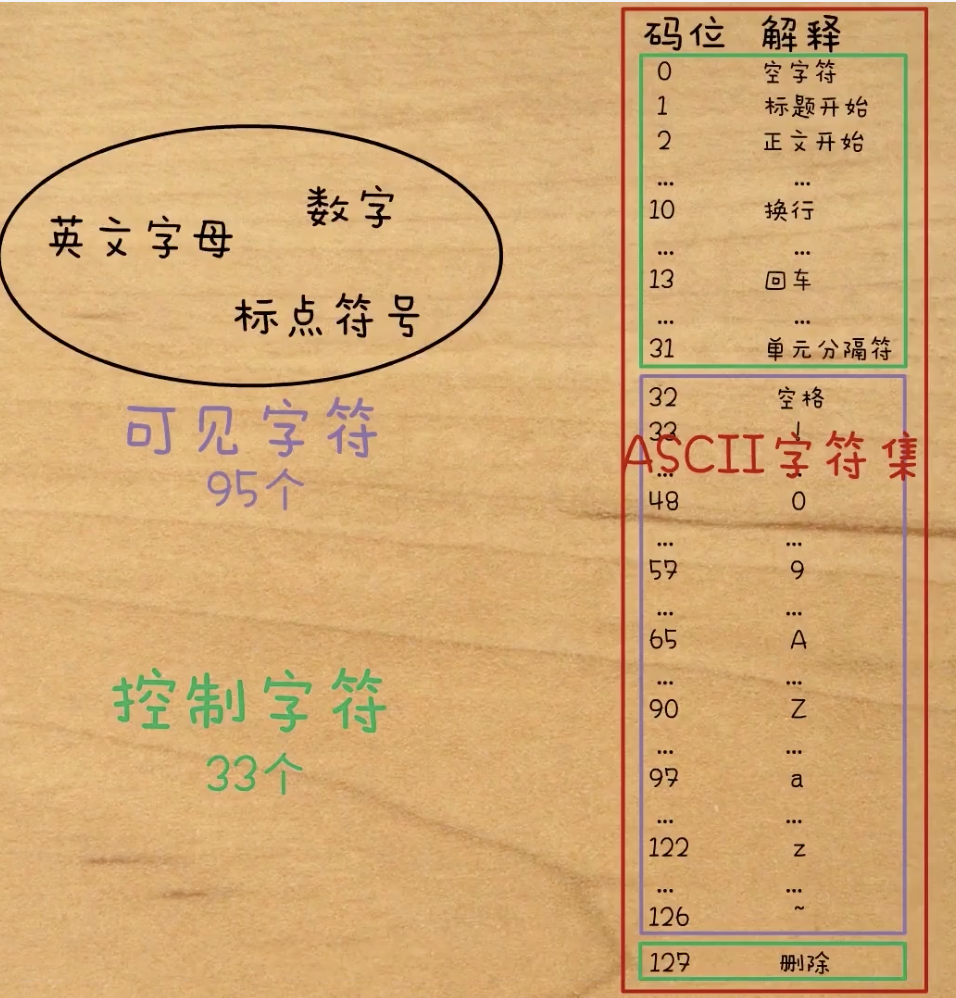 英文字母
数字
标点符号
可见字符
95个
控制字符
33个
码位 解释
0 空字符
1 标题开始
2 正文开始
... ...
10 换行
... ...
13 回车
... ...
31 单元分隔符
32 空格
33 !
ASCII字符集
... ...
48 0
... ...
57 9
... ...
65 A
... ...
90 Z
... ...
97 a
... ...
122 z
... ...
126 ~
127 删除